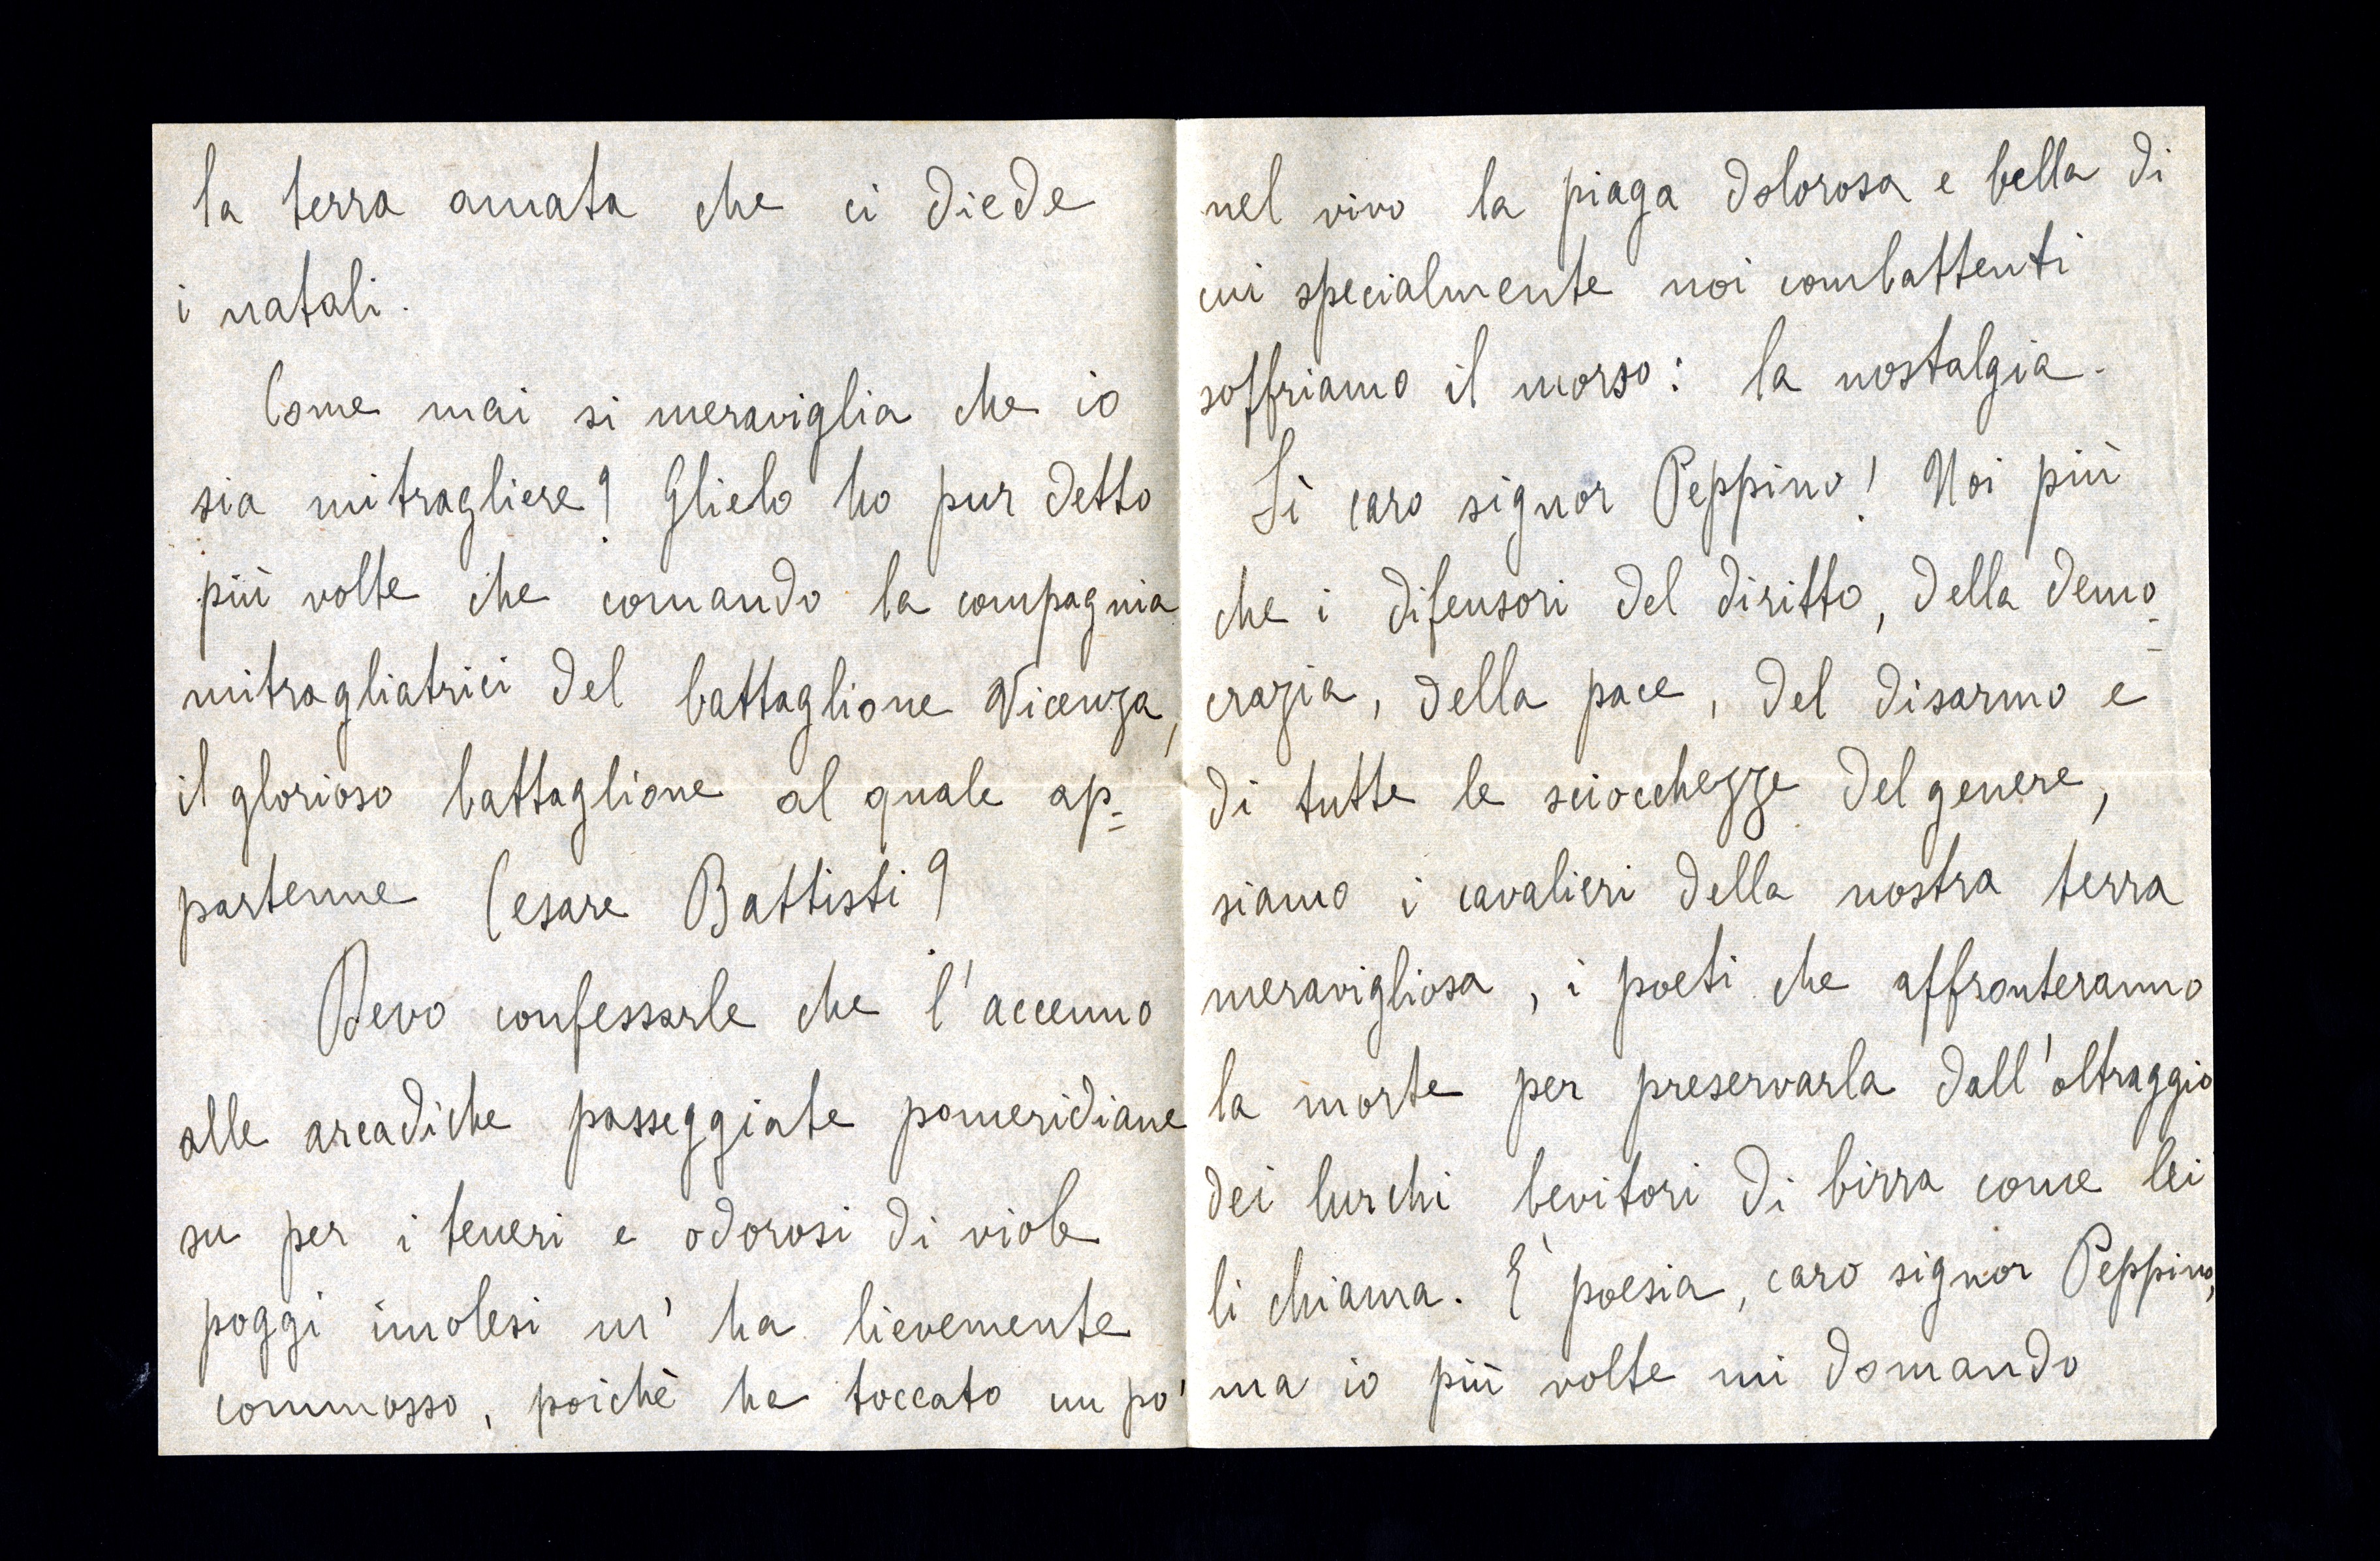 la terra amata che ci diede
i natali.
Come mai si meraviglia che io
sia mitragliere? Glielo ho pur detto
più volte che comando la compagnia
mitragliatrici del battaglione Vicenza,
il glorioso battaglione al quale ap=
partenne Cesare Battisti?
Devo confessarle che l'accenno
alle arcadiche passeggiate pomeridiane
su per i teneri e odorosi di viole
poggi imolesi m'ha lievemente
commosso, poichè ha toccato un po'
nel vivo la piaga dolorosa e bella di
cui specialmente noi combattenti
soffriamo il morso: la nostalgia.
Sì caro signor Peppino! Noi più
che i difensori del diritto, della demo=
crazia, della pace, del disarmo e
di tutte le sciocchezze del genere,
siamo i cavalieri della nostra terra
meravigliosa, i poeti che affronteranno
la morte per preservarla dall'oltraggio
dei lurchi bevitori di birra come lei
li chiama. È poesia, caro signor Peppino,
ma io più volte mi domando